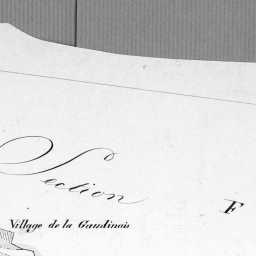 Section F
Village de la Gaudinais